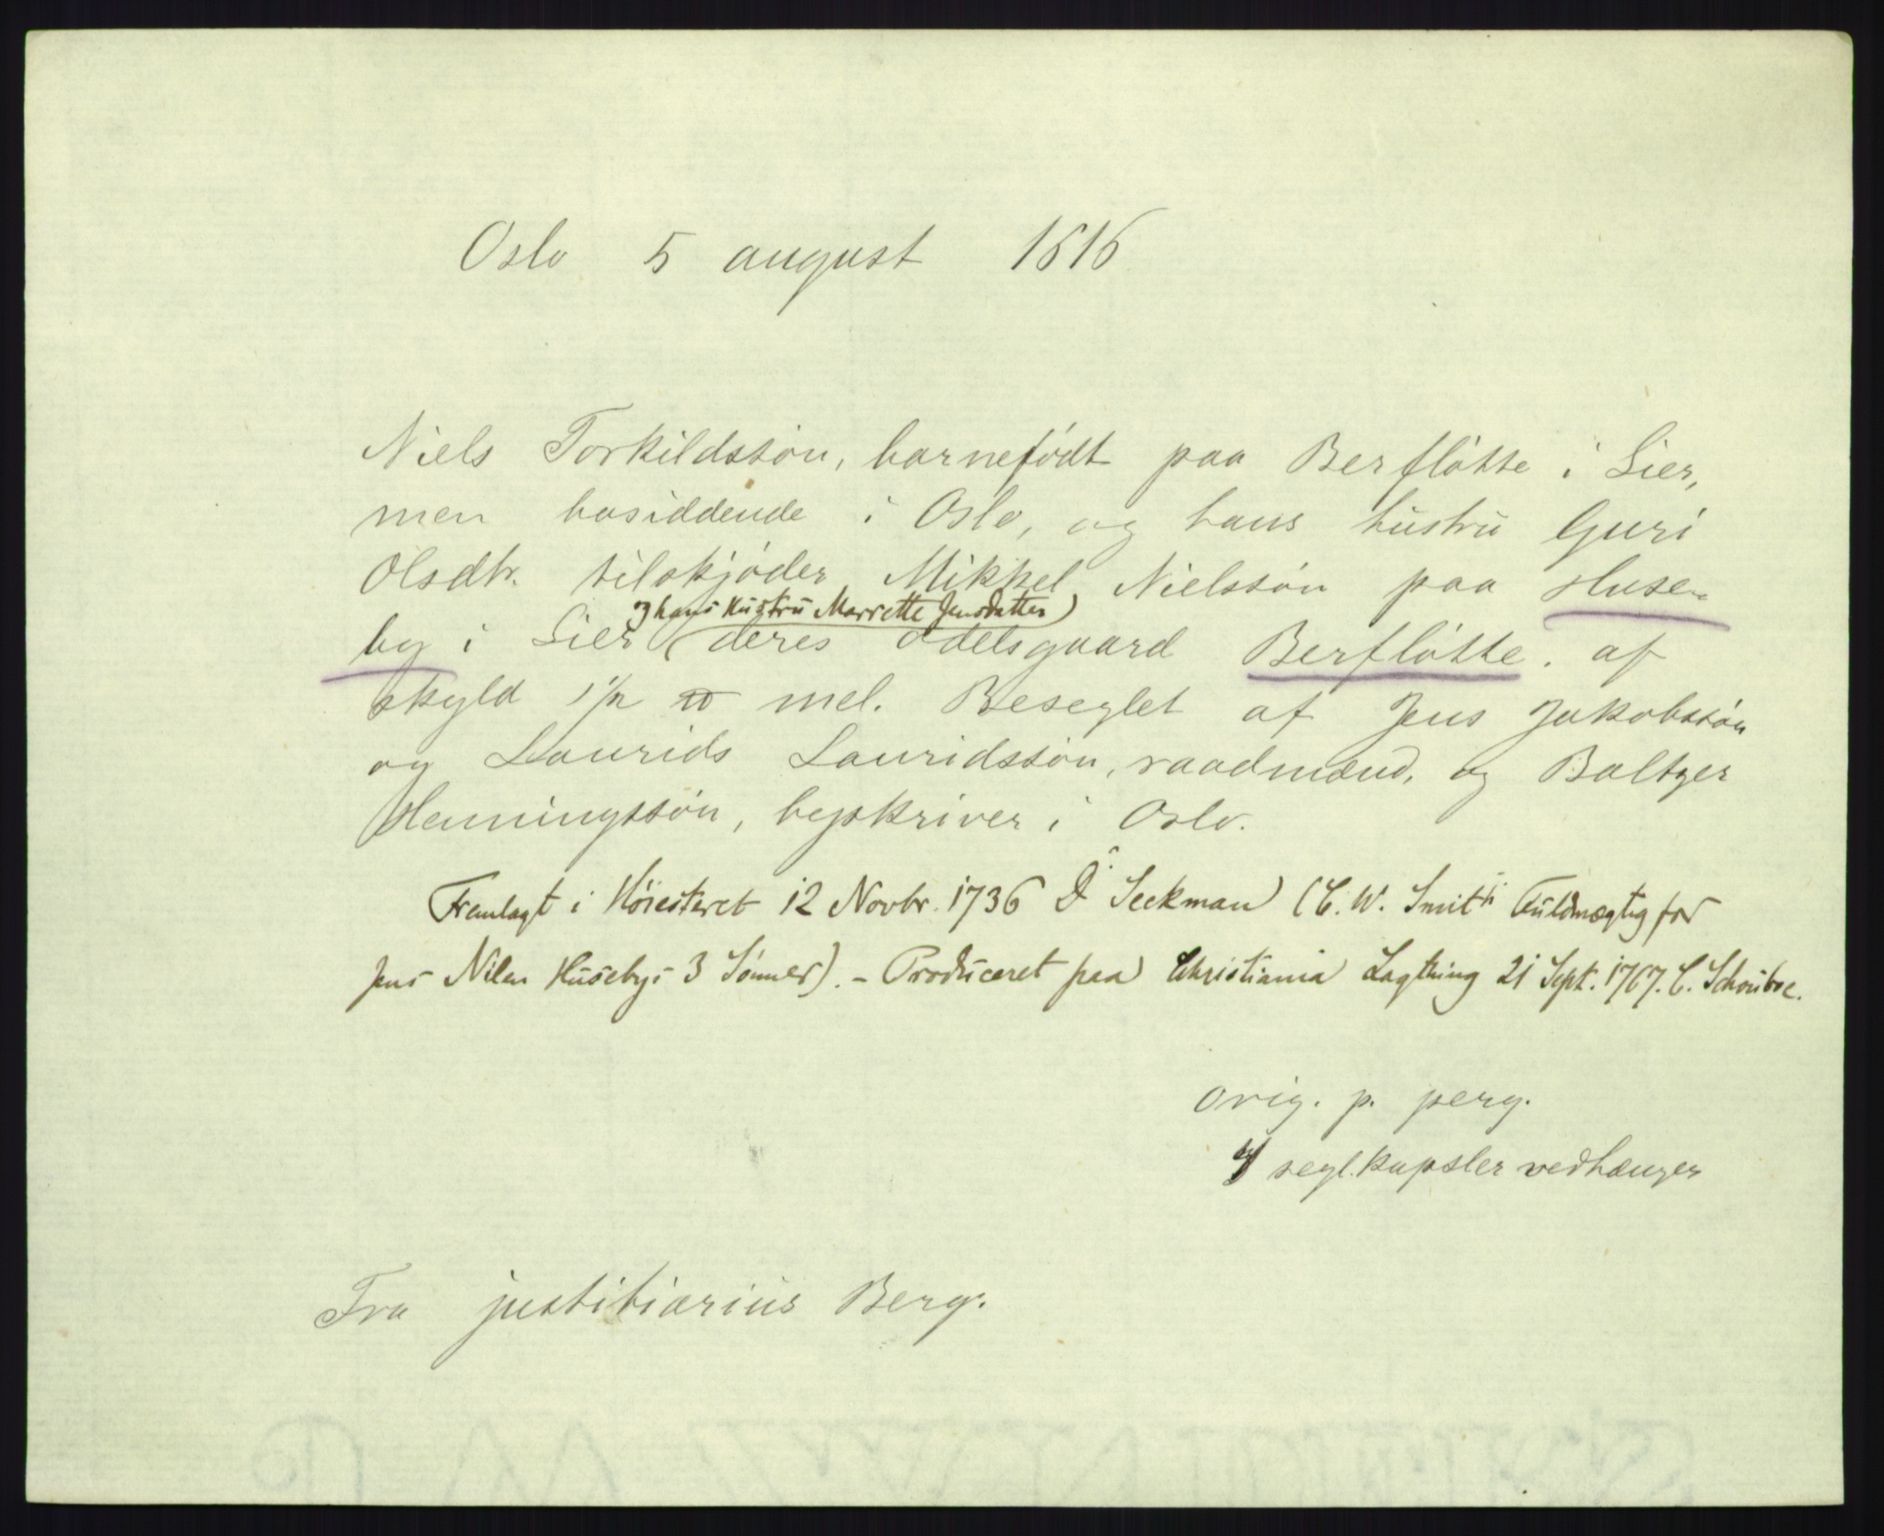 Oslo 5 august 1616
Niels Torkildssøn, barnefødt paa Berfløtte i Lier,
men bosiddende i Oslo, og hans hustru Guri
Olsdtr. tilskjøder Mikkel Nielssøn paa Huse-
og hans Hustru Marrette Jensdatter)
by i Lier (deres odelsgaard Berfløtte. af
skyld 1½ mel. Beseglet af Jens Jakobssøn
og Laurids Lauridssøn, raadmænd, og Baltzer
Henningssøn, byskriver i Oslo.
Fremlagt i Høiesteret 12 Novbr. 1736 Seckman (C. W. Smith Fuldmægtig for
Jens Nilsen Husebys 3 Sønner). - Produceret paa Christiania Lagthing 21 Sept. 1767. C. Schouboe.
orig. p. perg.
4 segl.kapsler vedhænger
Fra justitiarius Berg.